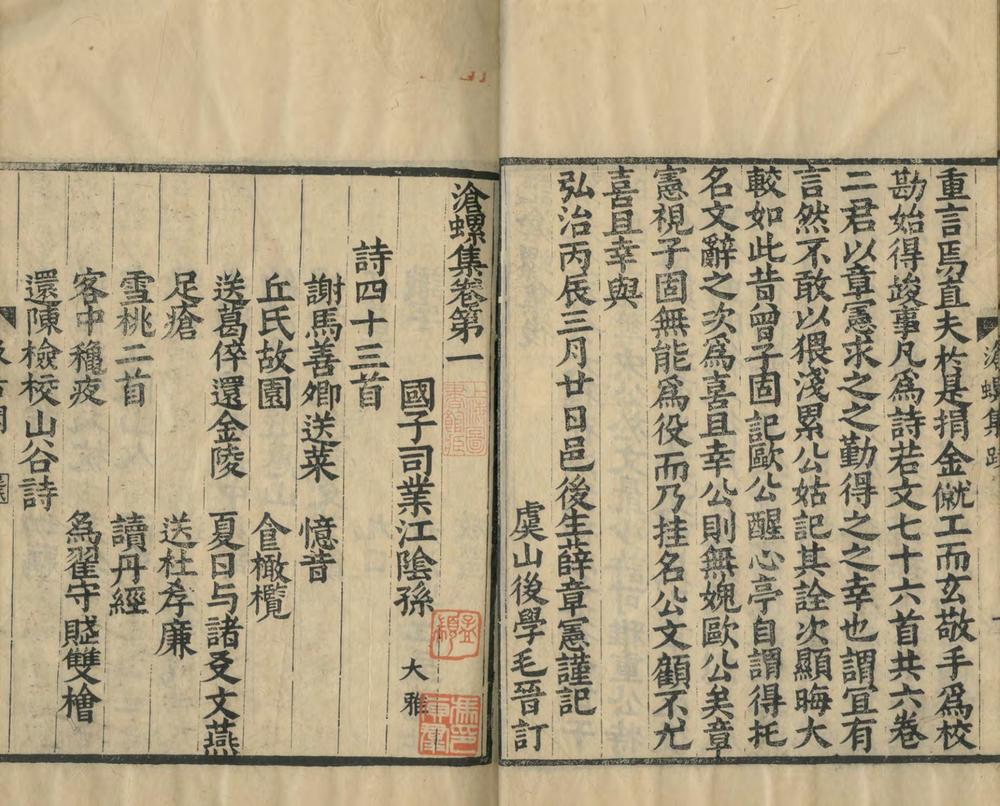 重言焉直夫於是捐金僦工而玄敬手爲校
勘始得竣事凡爲詩若文七十六首共六卷
二君以章憲求之之勤得之之幸也謂宜有
言然不敢以猥淺累公姑記其詮次顯晦大
較如此昔曾子固記歐公醒心亭自謂得托
名文辭之次爲喜且幸公則無媿歐公矣章
憲視子固無能爲役而乃挂名公文顧不尤
喜且幸與
弘治丙辰三月廿日邑後生薛章憲謹記
虞山後學毛晉訂
滄螺集卷第一
國子司業江陰孫 大雅
詩四十三首
謝馬善卿送菜 憶昔
丘氏故園 食橄欖
送葛倅還金陵 夏日与諸友文燕
足瘡 送杜孝廉
雪桃二首 讀丹經
客中穐疫 爲翟守賦雙檜
還陳檢校山谷詩